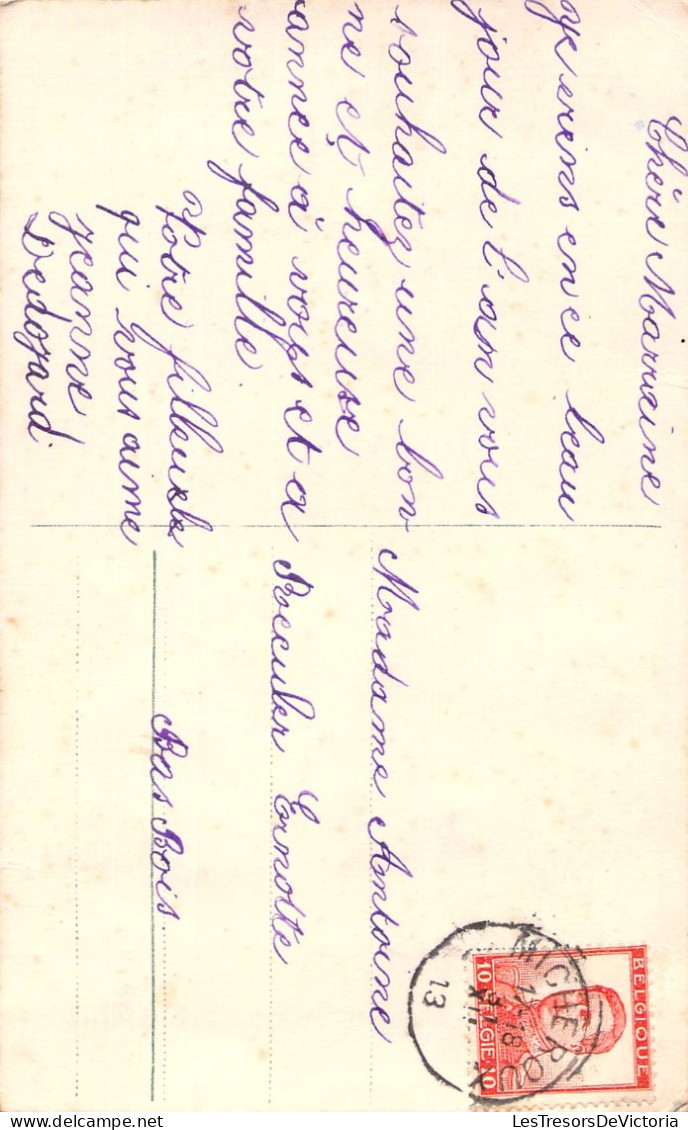 Chère Marraine
Je viens en ce beau
jour de l'an vous
souhaitez une bon
ne et heureuse
année à vous et a
votre famille.
Votre filleule
qui vous aime
Jeanne
Madame Antoine
Ernotte
Bas Bois
BELGIQUE
10 BELGIË 10
MICHEROUX
31
XII
13
LesTresorsDeVictoria.com